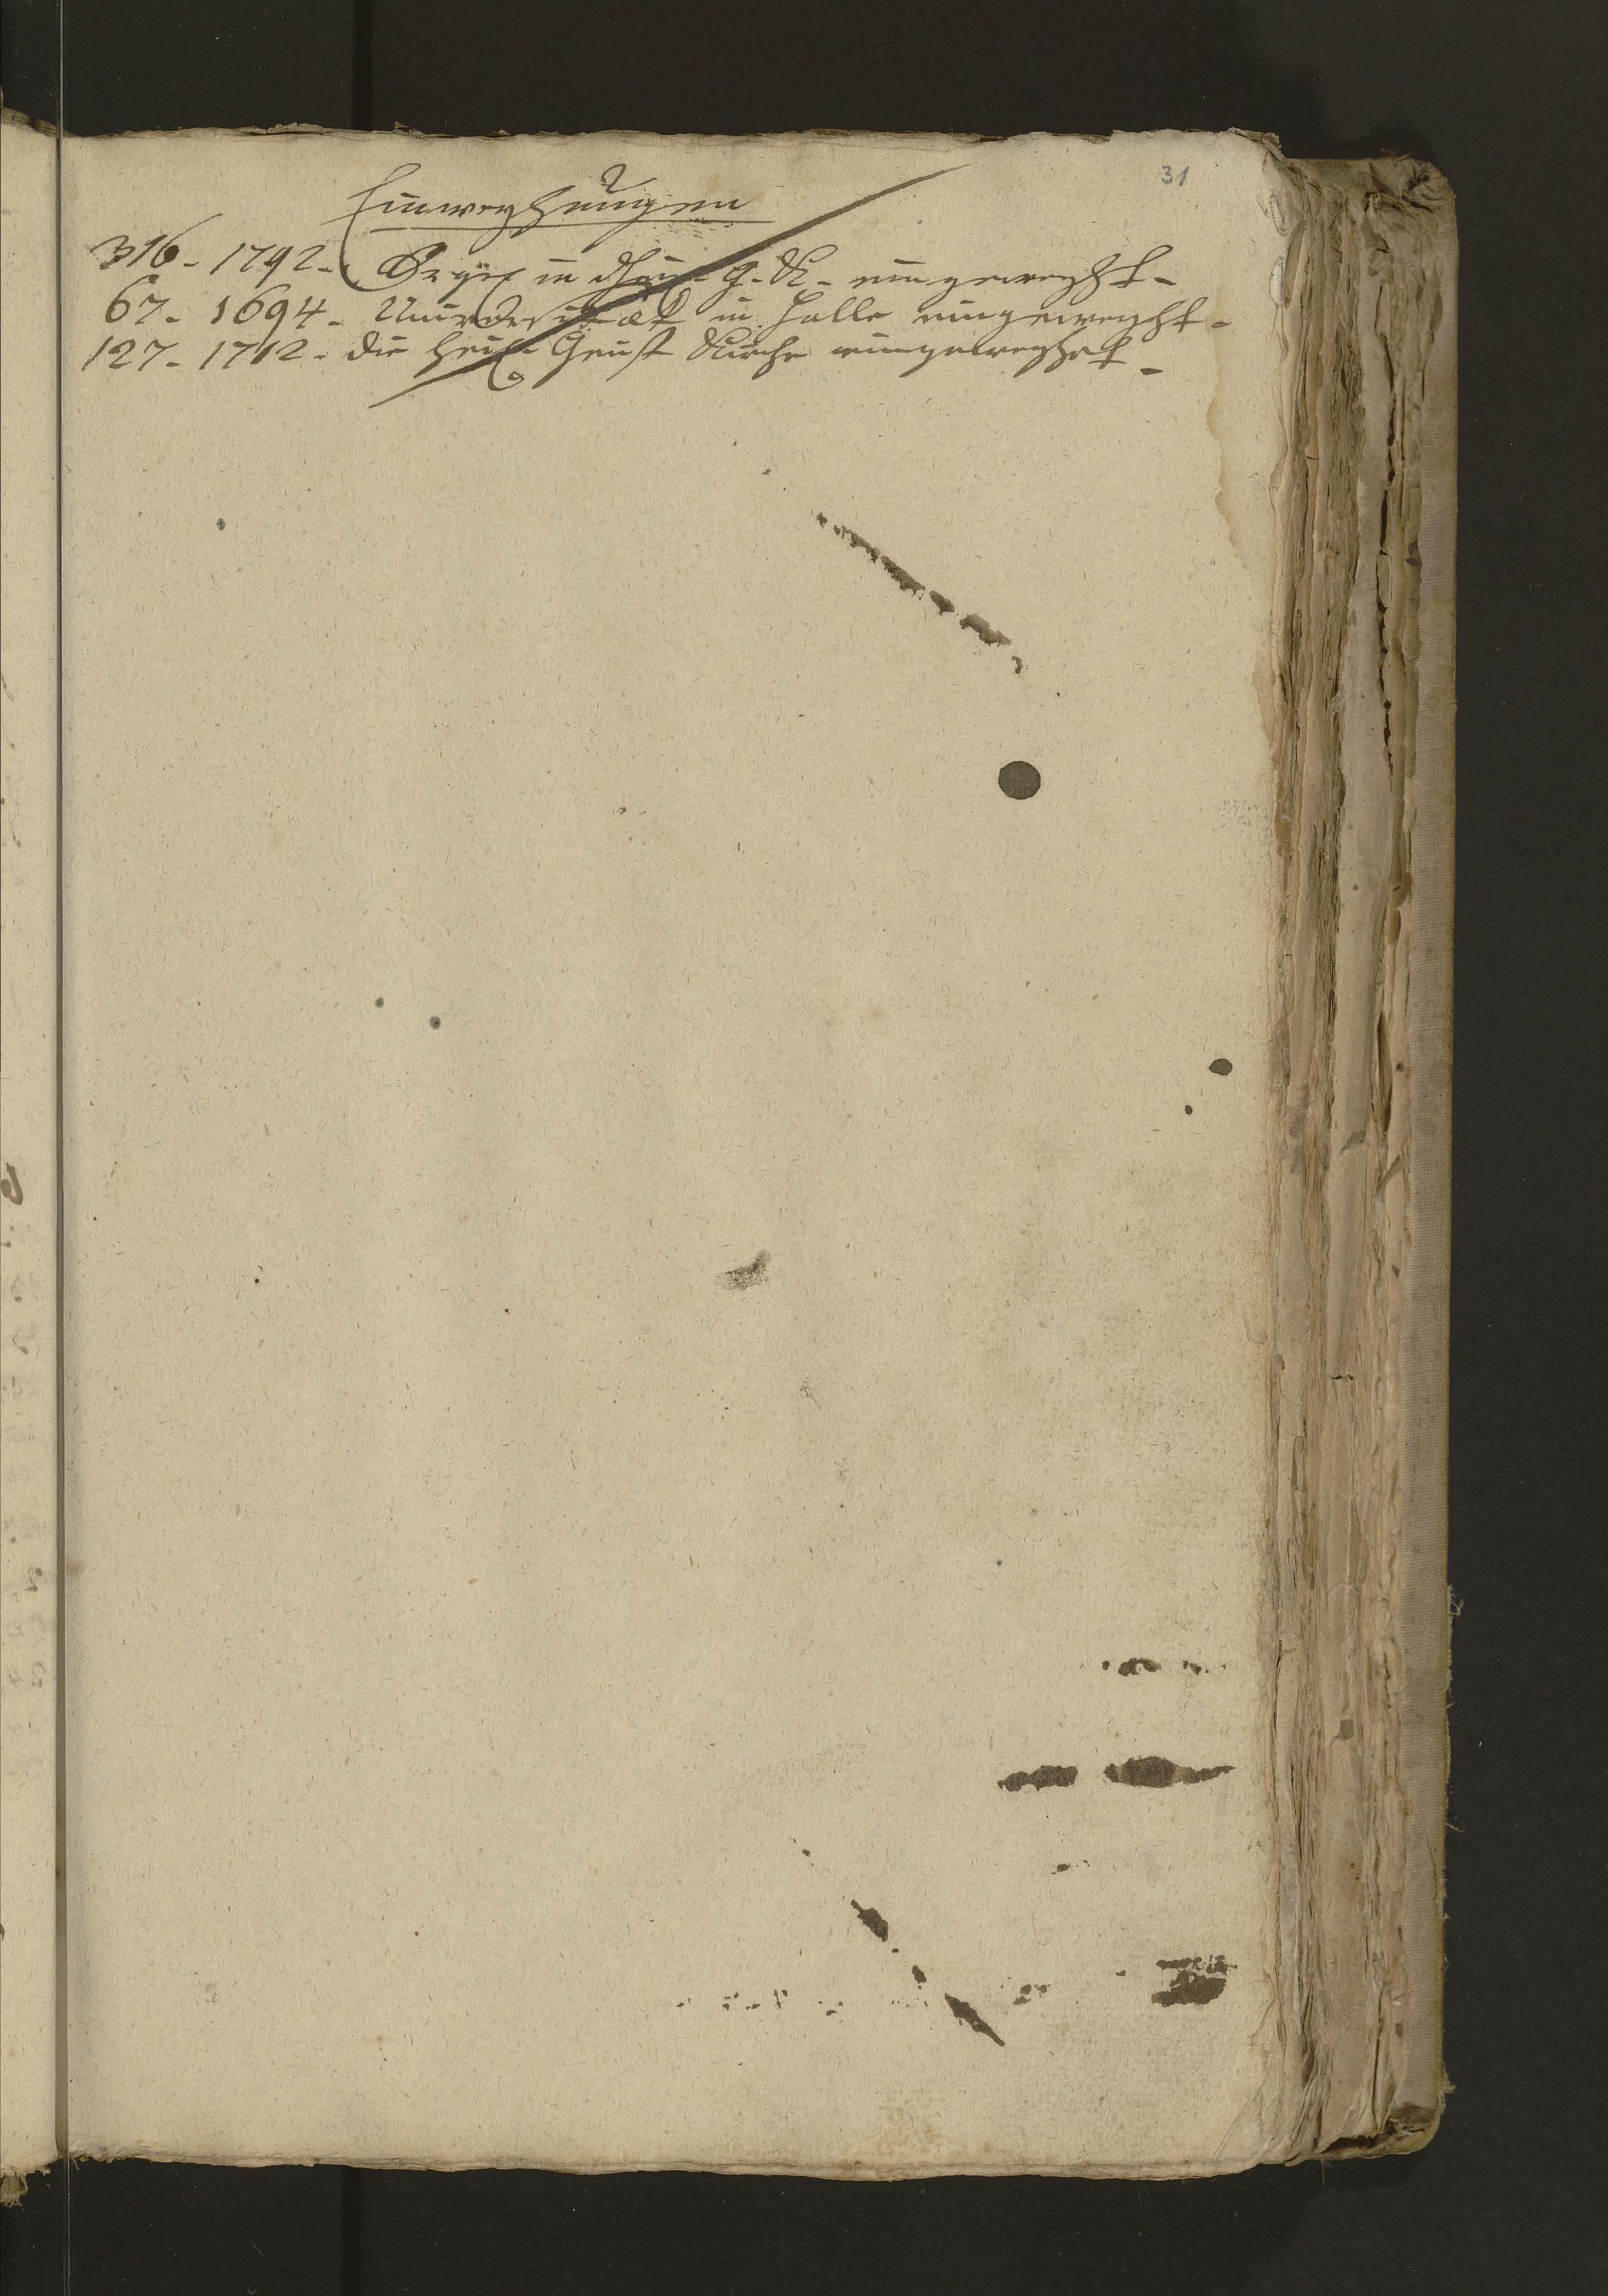 31
Einweyhungen
316 - 1792 - Orgel in Heil. G. K. eingeweyht -
67 - 1694 - Universitæt in Halle eingeweyht -
127 - 1712 - die Heil. Geist Kirche eingeweyhet -